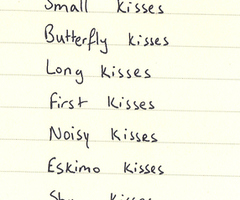 Small kisses
Butterfly kisses
Long kisses
First kisses
Noisy kisses
Eskimo kisses
kisses